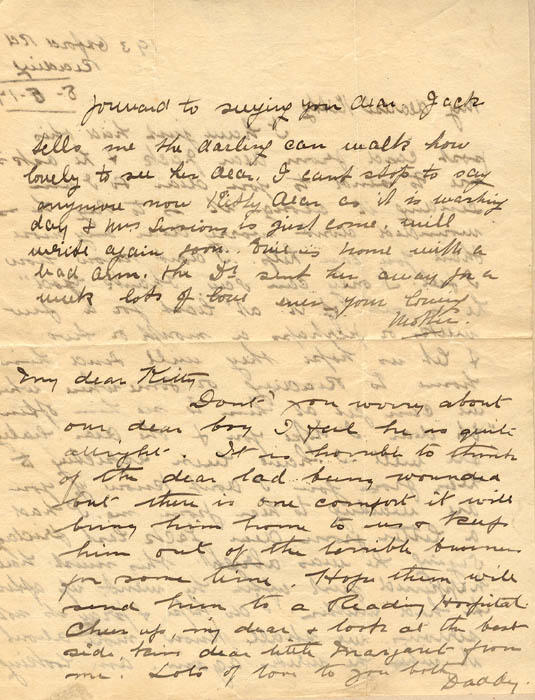 forward to seeing you dear Jack
tells me the darling can walk how
lovely to see her dear. I cant stop to say
anymore now Kitty dear as it is washing
day & Mrs Sessions is just come will
write again soon. Evie is home with a
bad arm. the Dr sent her away for a
week lots of love ever your loving
Mother.
My dear Kitty
Dont you worry about
our dear boy I feel he is quite
allright. It is horrible to think
of the dear lad being wounded
but there is one comfort it will
bring him home to us & keep
him out of the terrible business
for some time. Hope them will
send him to a Reading Hospital
Cheer up, my dear & look at the best
side. Kiss dear little Margaret from
me. Lots of love to you both
Daddy.